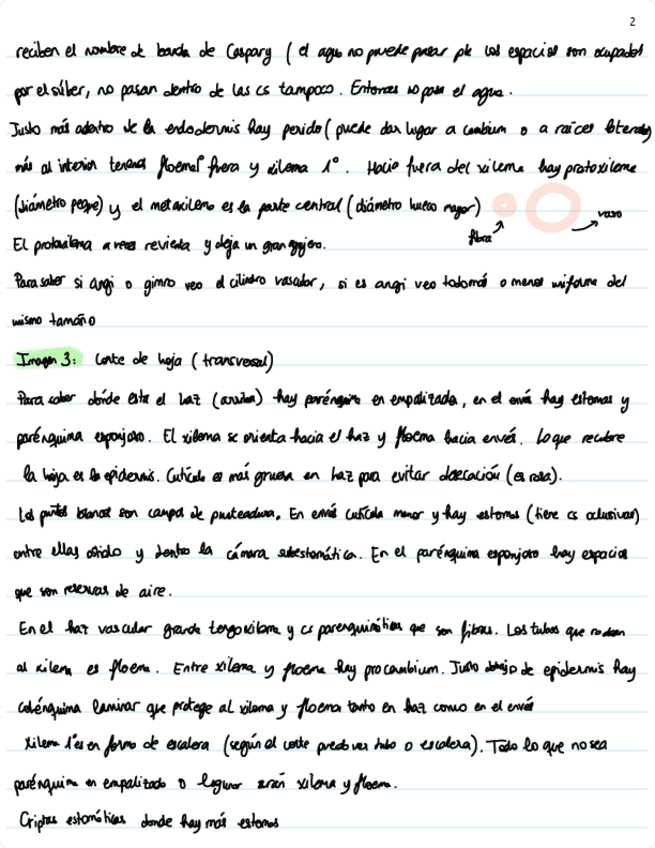 2
reciben el nombre de banda de Caspary ( el agua no puede pasar pk los espacios son ocupados
por el súber, no pasan dentro de las cs tampoco. Entonces no pasa el agua.
Justo más adentro de la endodermis hay periciclo ( puede dar lugar a cambium o a raíces laterales
más al interior tenemos floema 1º fuera y xilema 1º. Hacia fuera del xilema hay protoxilema
(diámetro peque) y el metaxilema es la parte central ( diámetro hueco mayor)
fibra
vaso
El protoxilema a veces revienta y deja un gran agujero.
Para saber si angi o gimno veo el cilindro vascular, si es angi veo todo más o menos uniforme del
mismo tamaño
Imagen 3: Corte de hoja ( transversal)
Para saber dónde está el haz (arriba) hay parénquima en empalizada, en el envés hay estomas y
parénquima esponjoso. El xilema se orienta hacia el haz y floema hacia envés. Lo que recubre
la hoja es la epidermis. Cutícula es más gruesa en haz para evitar desecación (es rosa).
Los puntos blancos son campos de punteadura. En envés cutícula menor y hay estomas (tiene cs oclusivas)
entre ellas ostiolo y dentro la cámara subestomática. En el parénquima esponjoso hay espacios
que son reservas de aire.
En el haz vascular grande tengo xilema y cs parenquimáticas que son fibras. Los tubos que rodean
al xilema es floema. Entre xilema y floema hay procambium. Justo debajo de epidermis hay
colénquima laminar que protege al xilema y floema tanto en haz como en el envés
Xilema 1º es en forma de escalera (según el corte puedo ver tubo o escalera). Todo lo que no sea
parénquima en empalizada o lagunar serán xilema y floema.
Criptas estomáticas donde hay más estomas